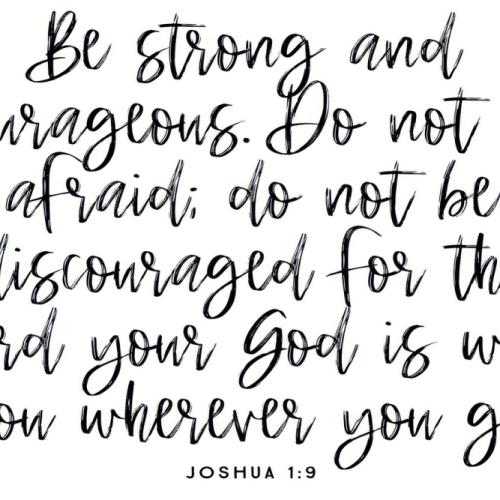 Be strong and
urageous. Do not
afraid; do not be
discouraged for th
rd your God is w
ou wherever you g
JOSHUA 1:9